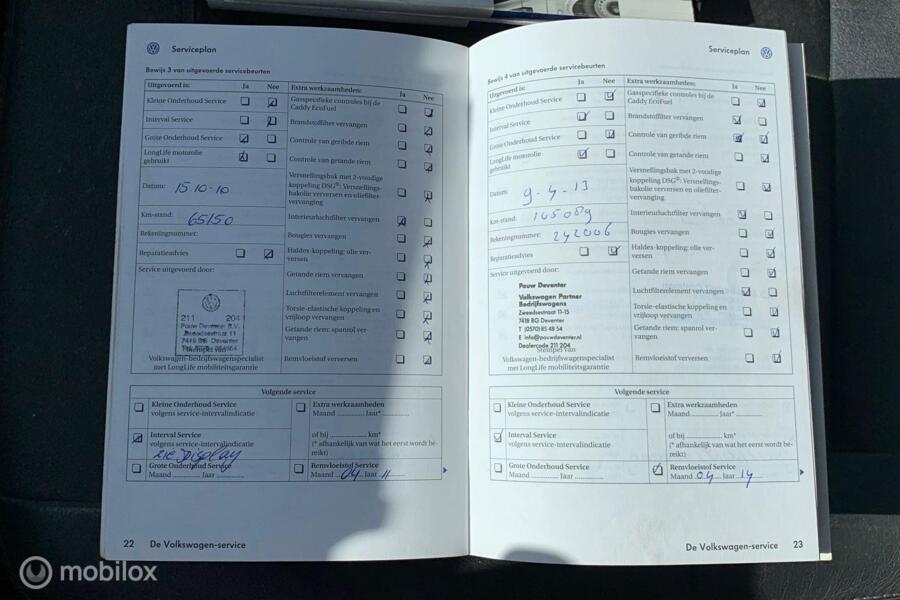 Serviceplan
Bewijs 3 van uitgevoerde servicebeurten
Uitgevoerd is: Ja Nee
Kleine Onderhoud Service
Interval Service
Grote Onderhoud Service
LongLife motorolie
gebruikt
Datum: 15-10-10
Km-stand: 65150
Rekeningnummer:
Reparatieadvies
Service uitgevoerd door:
211 204
Pauw Deventer B.V.
Zweedsestraat 11
7418 BG Deventer
Stempel van
Volkswagen-bedrijfswagenspecialist
met LongLife mobiliteitsgarantie
Extra werkzaamheden: Ja Nee
Gasspecifieke controles bij de
Caddy EcoFuel
Brandstoffilter vervangen
Controle van geribde riem
Controle van getande riem
Versnellingsbak met 2-voudige
koppeling DSG®: Versnellings-
bakolie verversen en oliefilter-
vervanging
Interieurluchtfilter vervangen
Bougies vervangen
Haldex-koppeling: olie ver-
versen
Getande riem vervangen
Luchtfilterelement vervangen
Torsie-elastische koppeling en
vrijloop vervangen
Getande riem: spanrol ver-
vangen
Remvloeistof verversen
Volgende service
Kleine Onderhoud Service
volgens service-intervalindicatie
Interval Service
volgens service-intervalindicatie
zie display
Grote Onderhoud Service
Maand Jaar
Extra werkzaamheden
Maand Jaar*
of bij km*
(* afhankelijk van wat het eerst wordt be-
reikt)
Remvloeistof Service
Maand 04 Jaar 11
22 De Volkswagen-service
Serviceplan
Bewijs 4 van uitgevoerde servicebeurten
Uitgevoerd is: Ja Nee
Kleine Onderhoud Service
Interval Service
Grote Onderhoud Service
LongLife motorolie
gebruikt
Datum: 9-4-13
Km-stand: 145089
Rekeningnummer: 242006
Reparatieadvies
Service uitgevoerd door:
Pauw Deventer
Volkswagen Partner
Bedrijfswagens
Zweedsestraat 11-15
7418 BG Deventer
T (0570) 85 48 54
E info@pauwdeventer.nl
Dealercode 211 204
Stempel van
Volkswagen-bedrijfswagenspecialist
met LongLife mobiliteitsgarantie
Extra werkzaamheden: Ja Nee
Gasspecifieke controles bij de
Caddy EcoFuel
Brandstoffilter vervangen
Controle van geribde riem
Controle van getande riem
Versnellingsbak met 2-voudige
koppeling DSG®: Versnellings-
bakolie verversen en oliefilter-
vervanging
Interieurluchtfilter vervangen
Bougies vervangen
Haldex-koppeling: olie ver-
versen
Getande riem vervangen
Luchtfilterelement vervangen
Torsie-elastische koppeling en
vrijloop vervangen
Getande riem: spanrol ver-
vangen
Remvloeistof verversen
Volgende service
Kleine Onderhoud Service
volgens service-intervalindicatie
Interval Service
volgens service-intervalindicatie
Grote Onderhoud Service
Maand Jaar
Extra werkzaamheden
Maand Jaar*
of bij km*
(* afhankelijk van wat het eerst wordt be-
reikt)
Remvloeistof Service
Maand 04 Jaar 14
De Volkswagen-service 23
mobilox